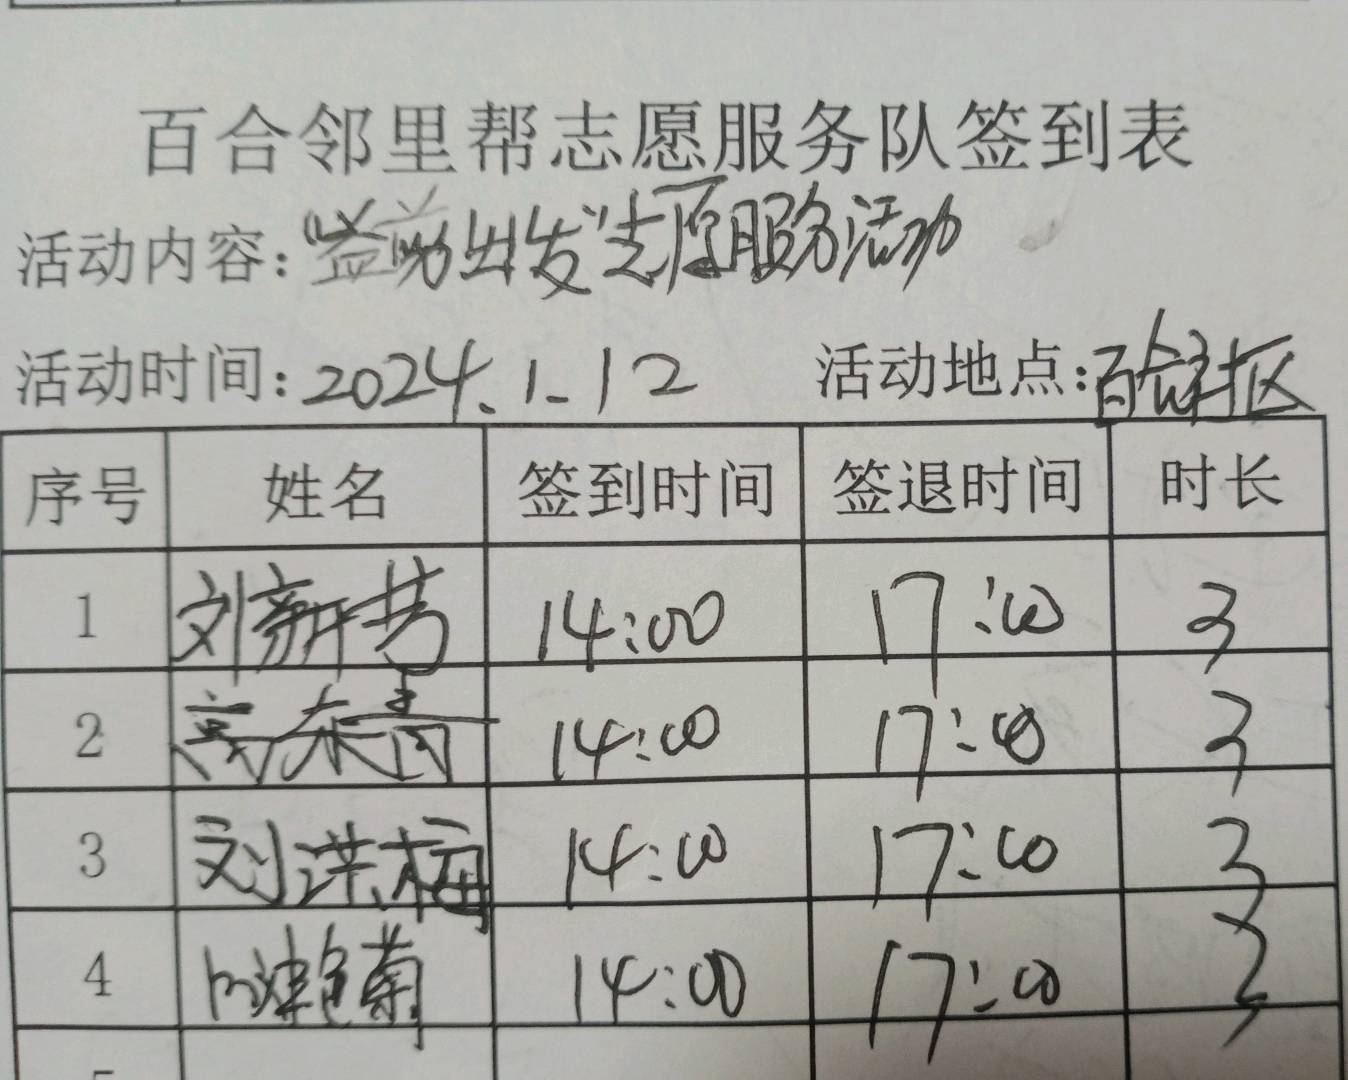 百合邻里帮志愿服务队签到表
活动内容：“益动出发”志愿服务活动
活动时间：2024.1.12 活动地点：百合社区
序号 姓名 签到时间 签退时间 时长
1 刘新芳 14:00 17:00 3
2 高东青 14:00 17:00 3
3 刘洪梅 14:00 17:00 3
4 菊 14:00 17:00 3
5